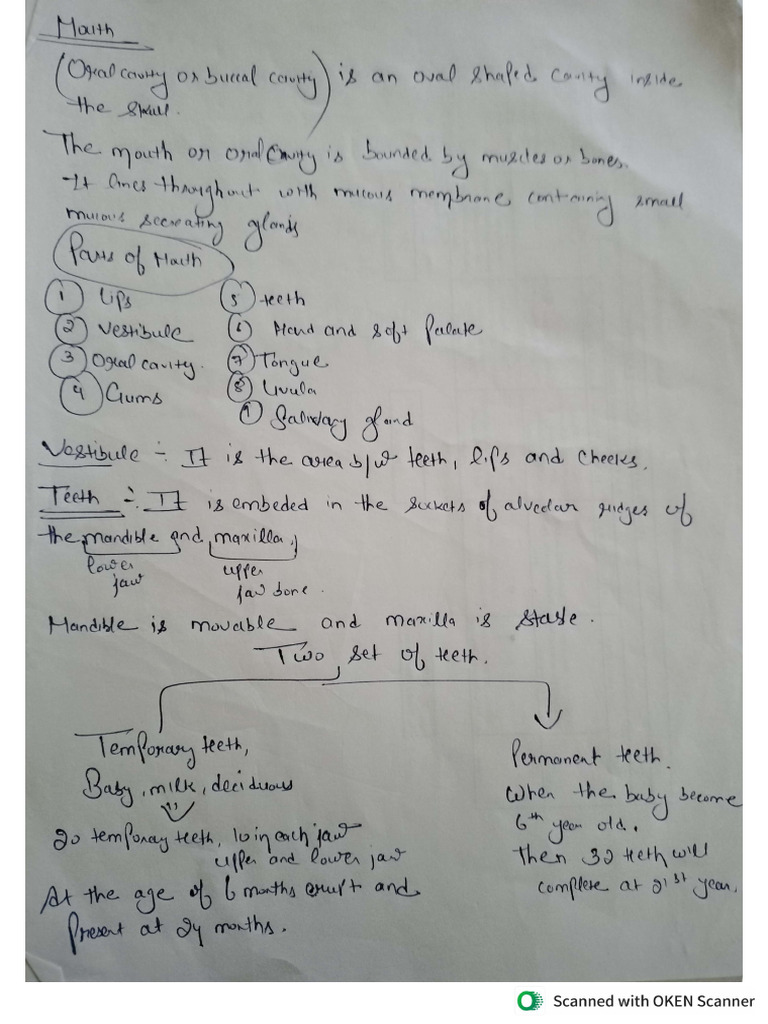 Mouth
(Oral cavity or buccal cavity) is an oval shaped cavity inside
the skull.
The mouth or oral cavity is bounded by muscles or bones.
It lines throughout with mucous membrane containing small
mucous secreating glands
Parts of Mouth
① Lips
② Vestibule
③ Oral cavity.
④ Gums
⑤ teeth
⑥ Hard and soft Palate
⑦ Tongue
⑧ Uvula
⑨ Salivary gland
Vestibule ÷ It is the area b/w teeth, lips and cheeks.
Teeth ÷ It is embeded in the sockets of alveolar ridges of
the mandible and maxilla.
lower
jaw
upper
jaw bone.
Mandible is movable and maxilla is stable.
Two set of teeth.
Temporary teeth,
Baby, milk, deciduous
20 temporay teeth, 10 in each jaw
upper and lower jaw
At the age of 6 months erupt and
Present at 24 months.
Permanent teeth.
When the baby become
6th year old.
Then 32 teeth will
complete at 21st year.
Scanned with OKEN Scanner